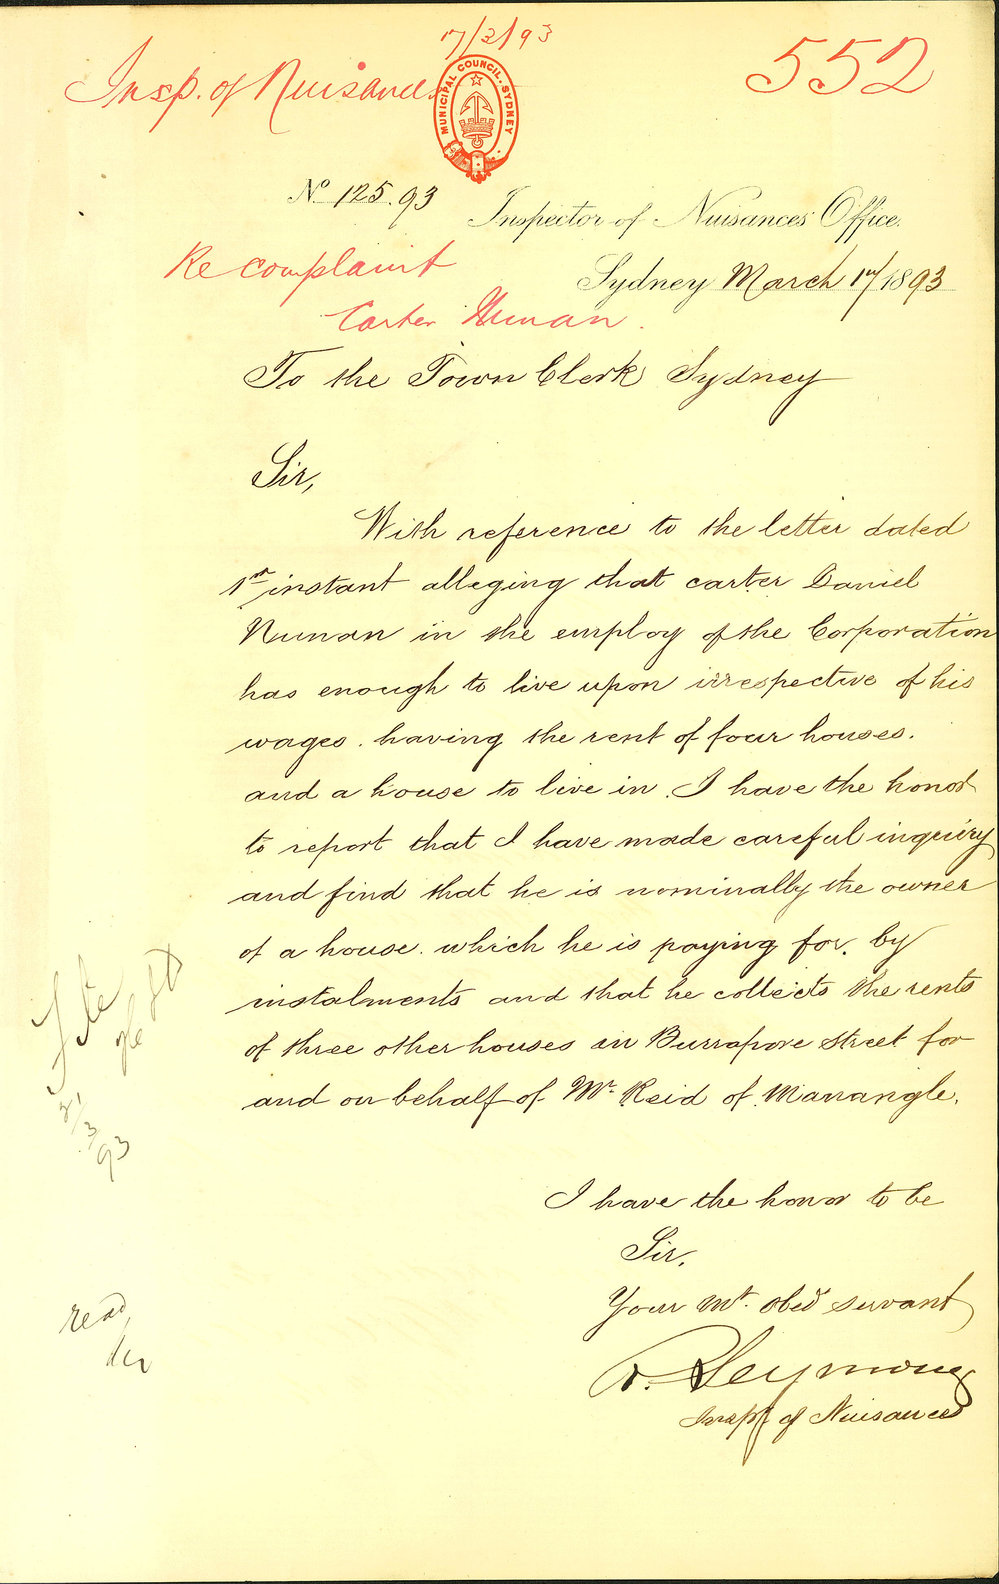 17/3/93
Insp. of Nuisances
552
MUNICIPAL COUNCIL. SYDNEY
No. 125.93
Inspector of Nuisances' Office.
Re complaint
Sydney March 17th 1893
Carter Nunan.
To the Town Clerk Sydney
Sir,
With reference to the letter dated
1st instant alleging that carter Daniel
Nunan in the employ of the Corporation
has enough to live upon irrespective of his
wages. having the rent of four houses.
and a house to live in. I have the honor
to report that I have made careful inquiry
and find that he is nominally the owner
of a house. which he is paying for. by
instalments and that he collects the rents
of three other houses in Burrapore Street for
and on behalf of Mr. Reid of Marrangle.
File
21/3/93
I have the honor to be
Sir,
Your Mt. obed servant
read
R. Seymour
Inspr of Nuisances